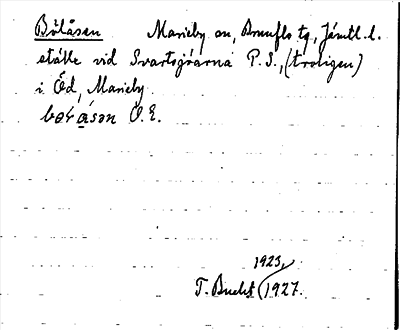 Bölåsen Marieby sn, Brunflo tg, Jämtl. l.
ställe vid Svartsjöarna P. S., (troligen)
i Öd, Marieby.
børåsən O. E.
1925,
T. Bucht 1927.